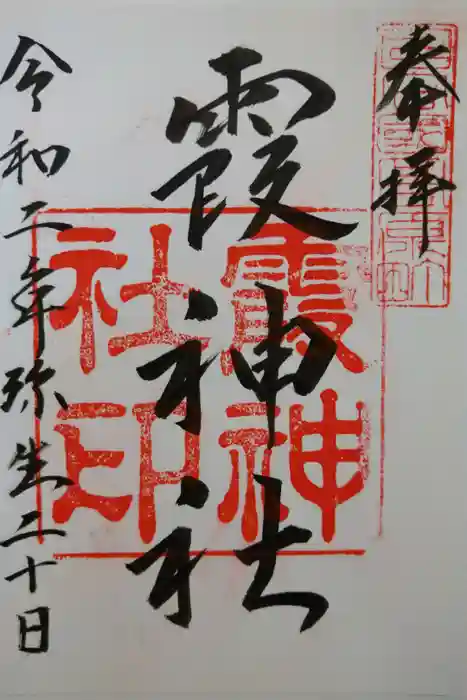 奉拝
霞神社
令和二年弥生二十日
霞神社印